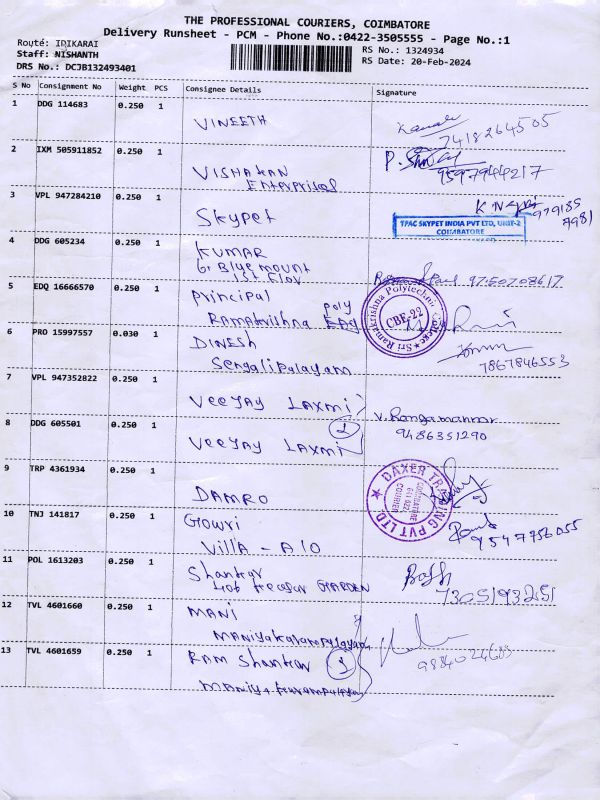 THE PROFESSIONAL COURIERS, COIMBATORE
Delivery Runsheet - PCM - Phone No.:0422-3505555 - Page No.:1
Route: IDIKARAI
Staff: NISHANTH
DRS No.: DCJB132493401
RS No.: 1324934
RS Date: 20-Feb-2024
S No Consignment No Weight PCS Consignee Details Signature
1 DDG 114683 0.250 1
VINEETH
7418264505
2 IXM 505911852 0.250 1
VISHAKAN
Enterprises
9597944217
3 VPL 947284210 0.250 1
Skypet
TPAC SKYPET INDIA PVT LTD, UNIT-2
COIMBATORE
4 DDG 605234 0.250 1
KUMAR
61 Blue mount
1st Floor
9750708617
5 EDQ 16666570 0.250 1
Principal
Ramakrishna Poly
Sri Ramakrishna Polytechnic College
CBE-22
6 PRO 15997557 0.030 1
DINESH
Sengalipalayam
7867846553
7 VPL 947352822 0.250 1
VEEJAY LAXMI
2
V. Rangamannar
9486351290
8 DDG 605501 0.250 1
VEEJAY LAXMI
9 TRP 4361934 0.250 1
DAMRO
DAXER TRADING PVT LTD
COIMBATORE
641 022
COURIER
10 TNJ 141817 0.250 1
Gowri
VillA - A10
9547756055
11 POL 1613203 0.250 1
Shankar
GARDEN
7305193251
12 TVL 4601660 0.250 1
MANI
Maniyakarampalayam
9884024683
13 TVL 4601659 0.250 1
RAM Shankar
2